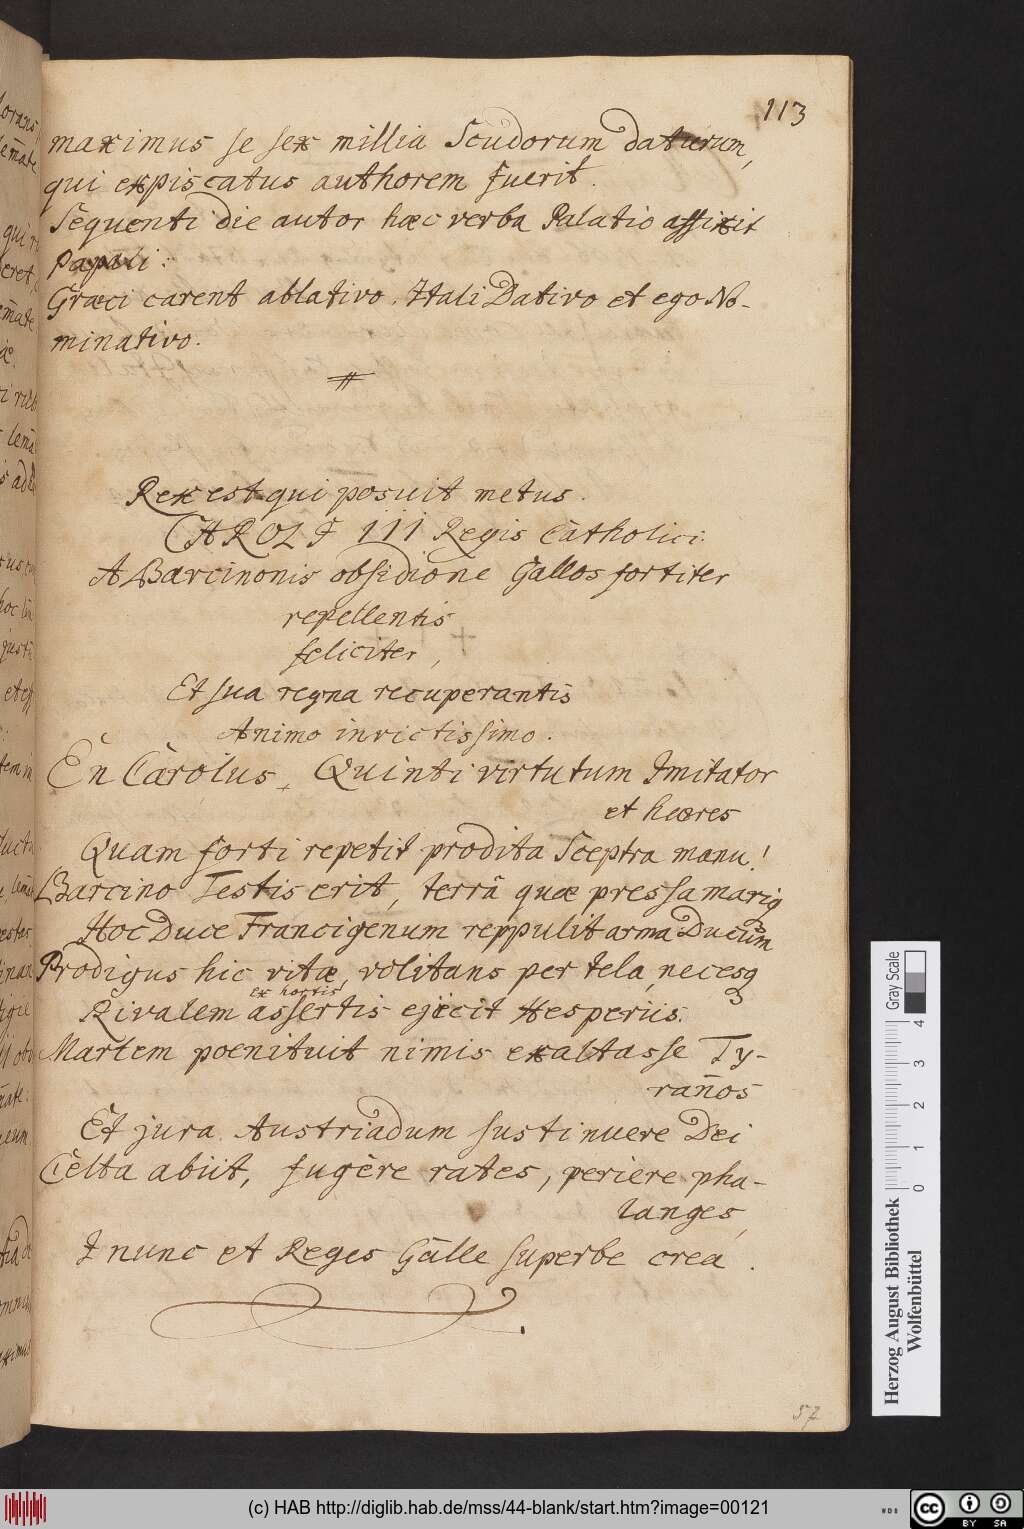 113
maximus se sex millia Scudorum daturum,
qui expiscatus authorem fuerit.
Sequenti die autor hæc verba Palatio affixit
Papali:
Græci carent ablativo. Itali Dativo et ego No-
minativo.
Rex est qui posuit metus.
CAROLI III Regis Càtholici:
A Barcinonis obsidione Gallos fortiter
repellentis
feliciter,
Et sua regna recuperantis
Animo invictissimo.
En Càrolus, Quinti virtutum Imitator
et hæres
Quam forti repetit prodita Sceptra manu!
Barcino Testis erit, terrâ quæ pressa mariq
Hoc Duce Francigenum reppulit arma Ducum
Prodigus hic vitæ, volitans per tela, necesq
ex hortis
Rivalem assertis ejecit Hesperiis.
Martem poenituit nimis exaltasse Ty-
raños
Et jura Austriadum sustinuere Dei
Cèlta abiit, fugère rates, periere pha-
langes,
I nunc et Reges Gàlle superbe crea.
57
Herzog August Bibliothek
Wolfenbüttel
Gray Scale
0 1 2 3 4
(c) HAB http://diglib.hab.de/mss/44-blank/start.htm?image=00121
WDB
cc BY SA